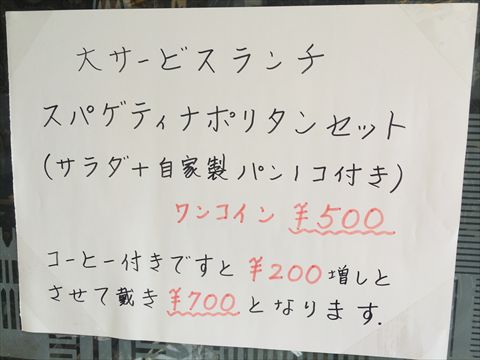 大サービスランチ
スパゲティナポリタンセット
(サラダ+自家製パン1コ付き)
ワンコイン ¥500
コーヒー付きですと ¥200 増しと
させて戴き ¥700 となります.